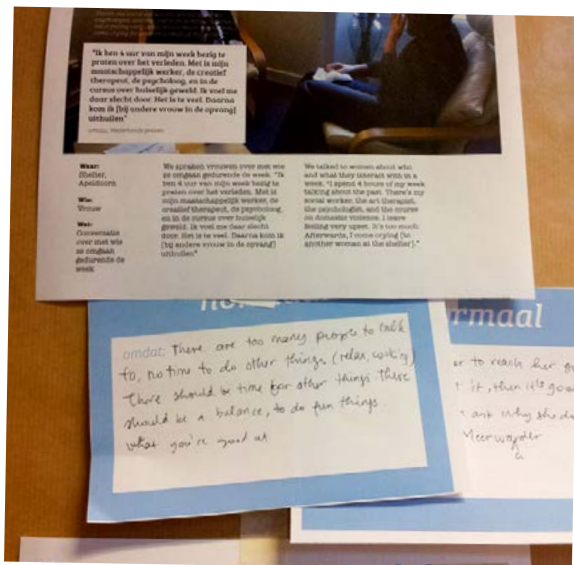 "Ik ben 4 uur van mijn week bezig te
praten over het verleden. Met is mijn
maatschappelijk werker, de creatief
therapeut, de psycholoog, en in de
cursus over huiselijk geweld. Ik voel me
daar slecht door. Het is te veel. Daarna
kom ik [bij andere vrouw in de opvang]
uithuilen"
Waar:
Shelter,
Apeldoorn
Wie:
Vrouw
Wat:
Conversatie
over met wie
ze omgaan
gedurende de
week
We spraken vrouwen over met wie
ze omgaan gedurende de week. "Ik
ben 4 uur van mijn week bezig te
praten over het verleden. Met is
mijn maatschappelijk werker, de
creatief therapeut, de psycholoog
en in de cursus over huiselijk
geweld. Ik voel me daar slecht
door. Het is te veel. Daarna kom ik
[bij andere vrouw in de opvang]
uithuilen"
We talked to women about who
and what they interact with in a
week. "I spend 4 hours of my week
talking about the past. There's my
social worker, the art therapist,
the psychologist, and the course
on domestic violence. I leave
feeling very upset. It's too much.
Afterwards, I come crying [to
another woman at the shelter]."
omdat: There are too many people to talk
to, no time to do other things (relax, cooking)
There should be time for other things there
should be a balance, to do fun things
what you're good at
rmaal
er to reach her
it, then it's goo
ask why she do